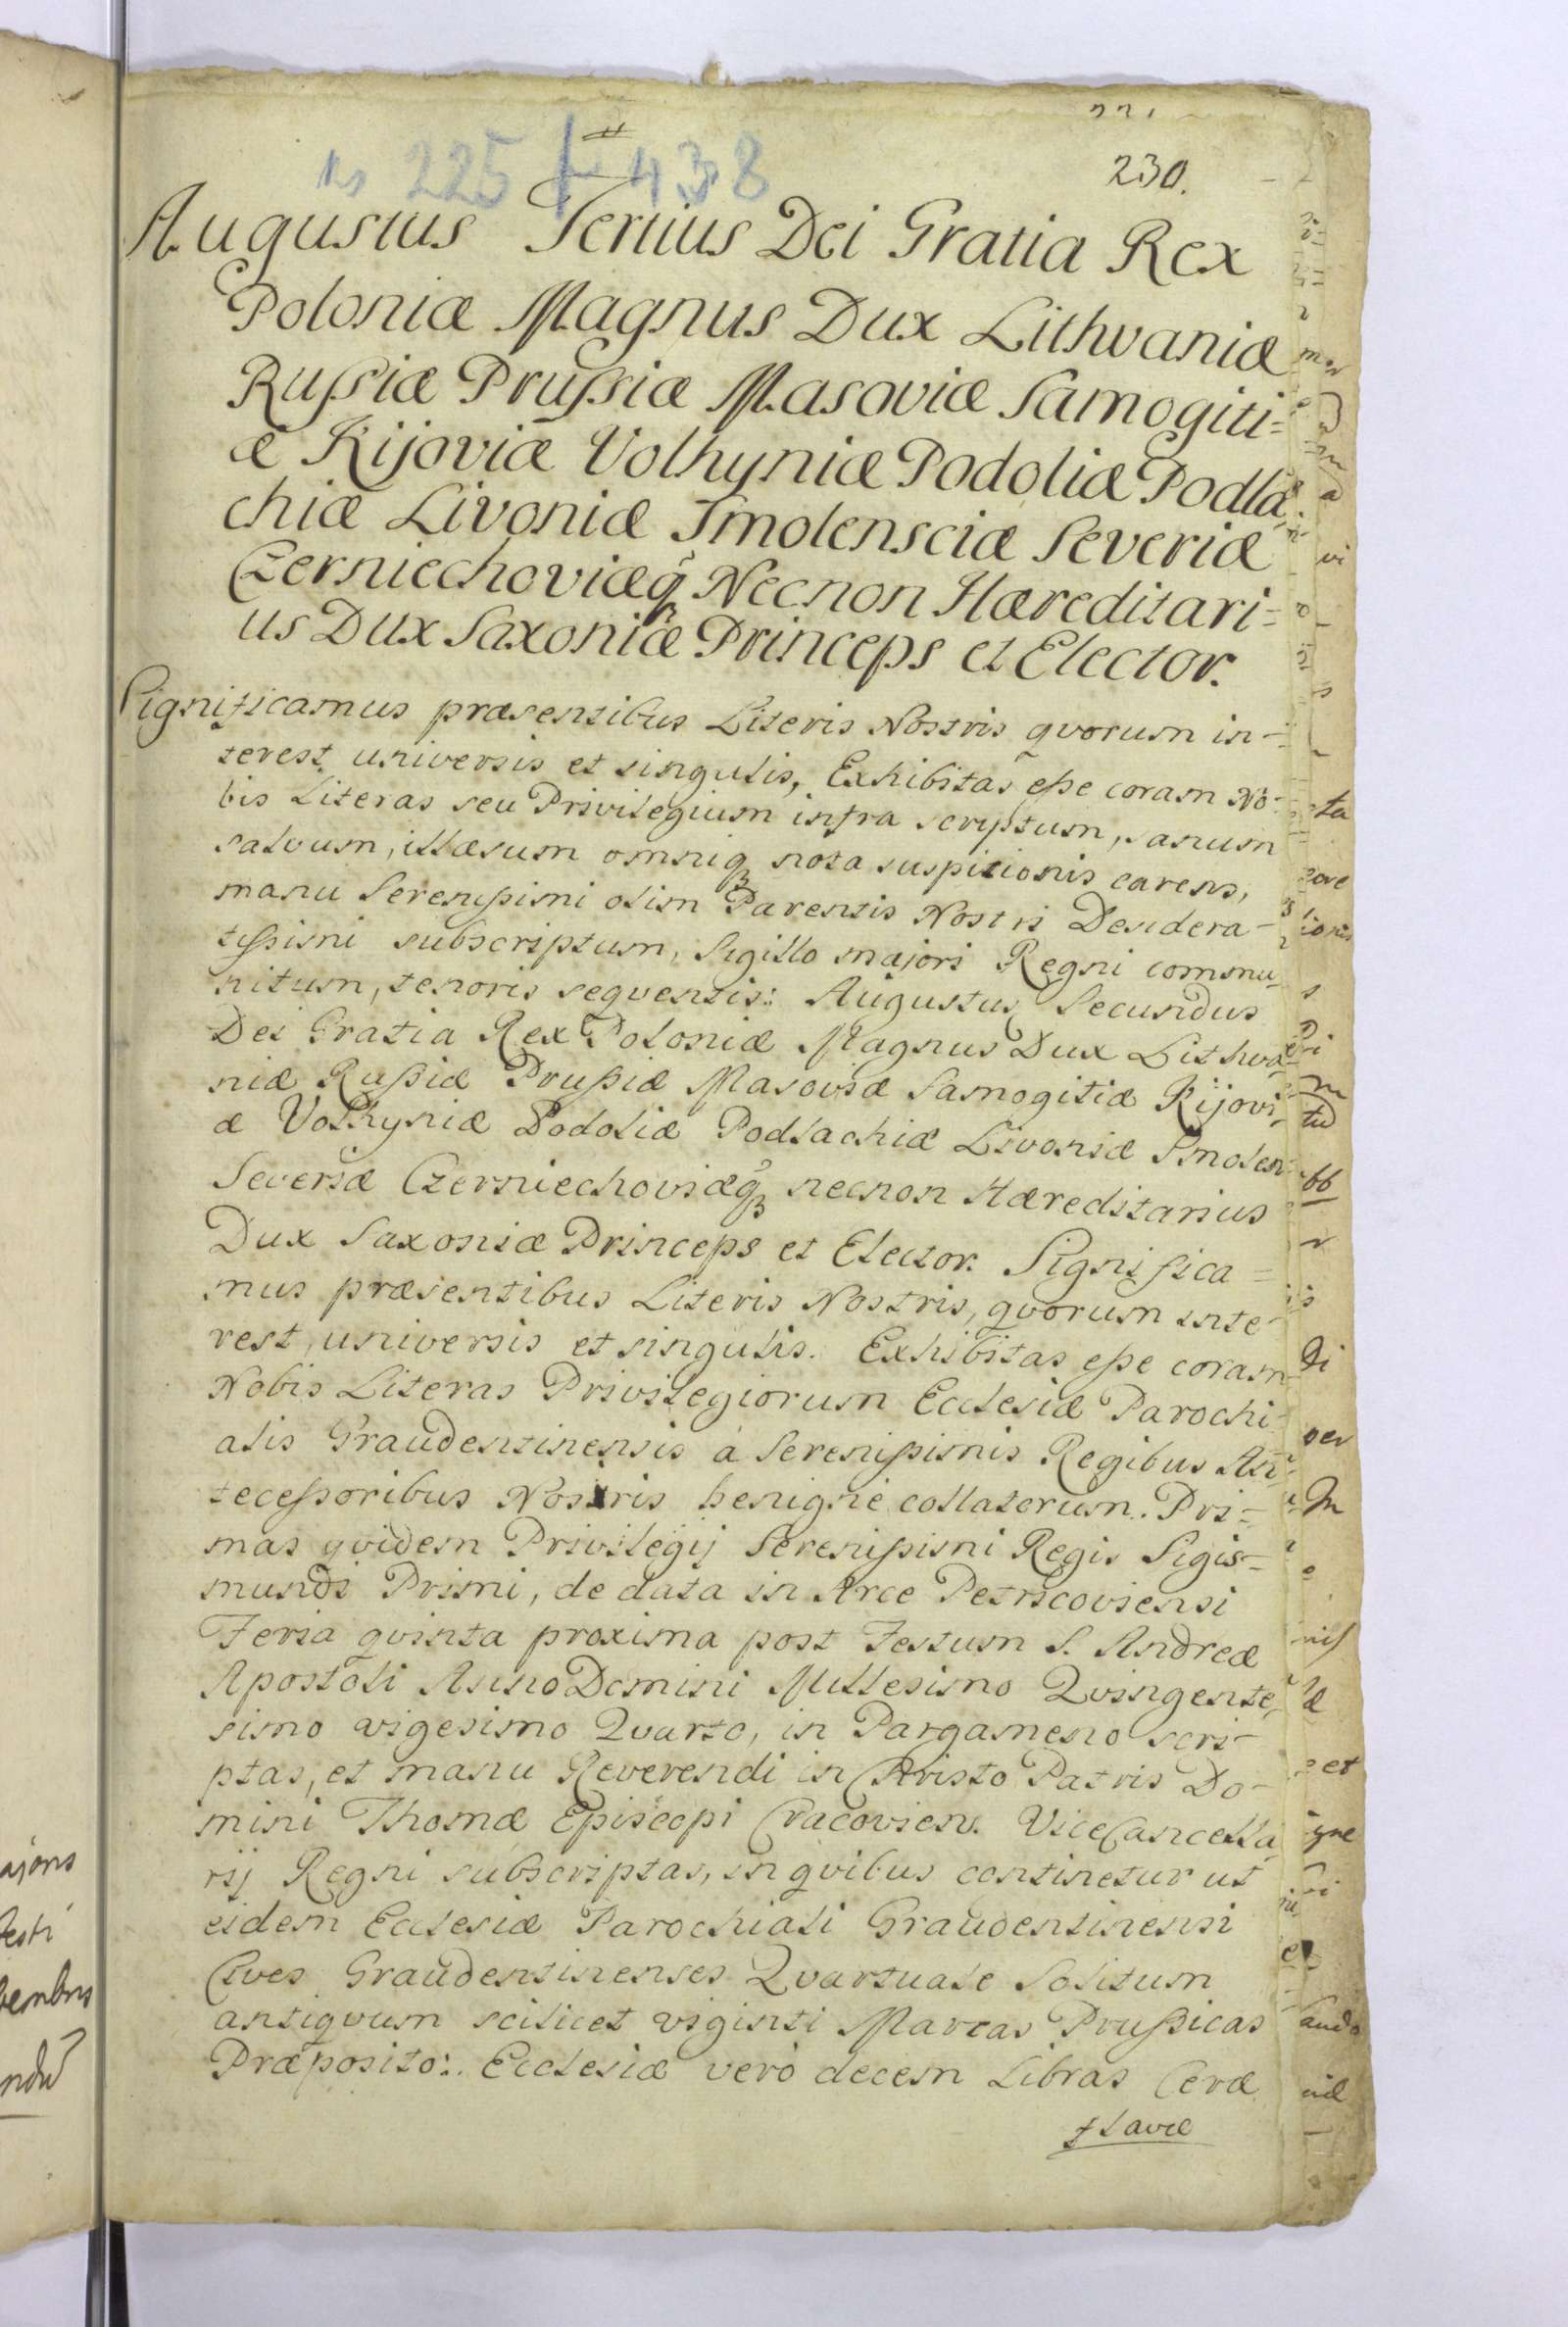 230.
225 438
Augustus Tertius Dei Gratia Rex
Poloniæ Magnus Dux Lithvaniæ
Rußiæ Prußiæ Masoviæ Samogiti=
æ Kijoviæ Volhyniæ Podoliæ Podla
chiæ Livoniæ Smolensciæ Severiæ
Czerniechoviæq̃ Necnon Hæreditari=
us Dux Saxoniæ Princeps et Elector.
Significamus præsentibus Literis Nostris qvorum in-
terest, universis et singulis, Exhibitas eße coram No-
bis Literas seu Privilegium infra scriptum, sanum
salvum, illæsum omniq nota suspicionis carens,
manu Serenißimi olim Parentis Nostri Desidera-
tißimi subscriptum, Sigillo majori Regni commu-
nitum, tenoris seqventis: Augustus Secundus
Dei Gratia Rex Poloniæ Magnus Dux Lithva-
niæ Rußiæ Prußiæ Masoviæ Samogitiæ Kijovi-
æ Volhyniæ Podoliæ Podlachiæ Livoniæ Smolen
Severiæ Czerniechoviæq̃ necnon Hæreditarius
Dux Saxoniæ Princeps et Elector. Significa=
mus præsentibus Literis Nostris, qvorum inte-
rest, universis et singulis. Exhibitas eße coram
Nobis Literas Privilegiorum Ecclesiæ Parochi-
alis Graudentinensis à Serenißimis Regibus An-
teceßoribus Nostris benigne collatorum. Pri=
mas qvidem Privilegij Serenißimi Regis Sigis=
mundi Primi, de data in Arce Petricoviensi
Feria qvinta proxima post Festum S. Andreæ
Apostoli Anno Domini Millesimo Qvingente-
simo vigesimo Qvarto, in Pargameno scri-
ptas, et manu Reverendi in Christo Patris Do-
mini Thomæ Episcopi Cracovien. ViceCancella
rij Regni subscriptas, in qvibus continetur ut
eidem Ecclesiæ Parochiali Graudentinensi
Cives Graudentinenses Qvartuale Solitum
antiqvum scilicet viginti Marcas Prußicas
Præposito:. Ecclesiæ verò decem Libras Ceræ
flavæ